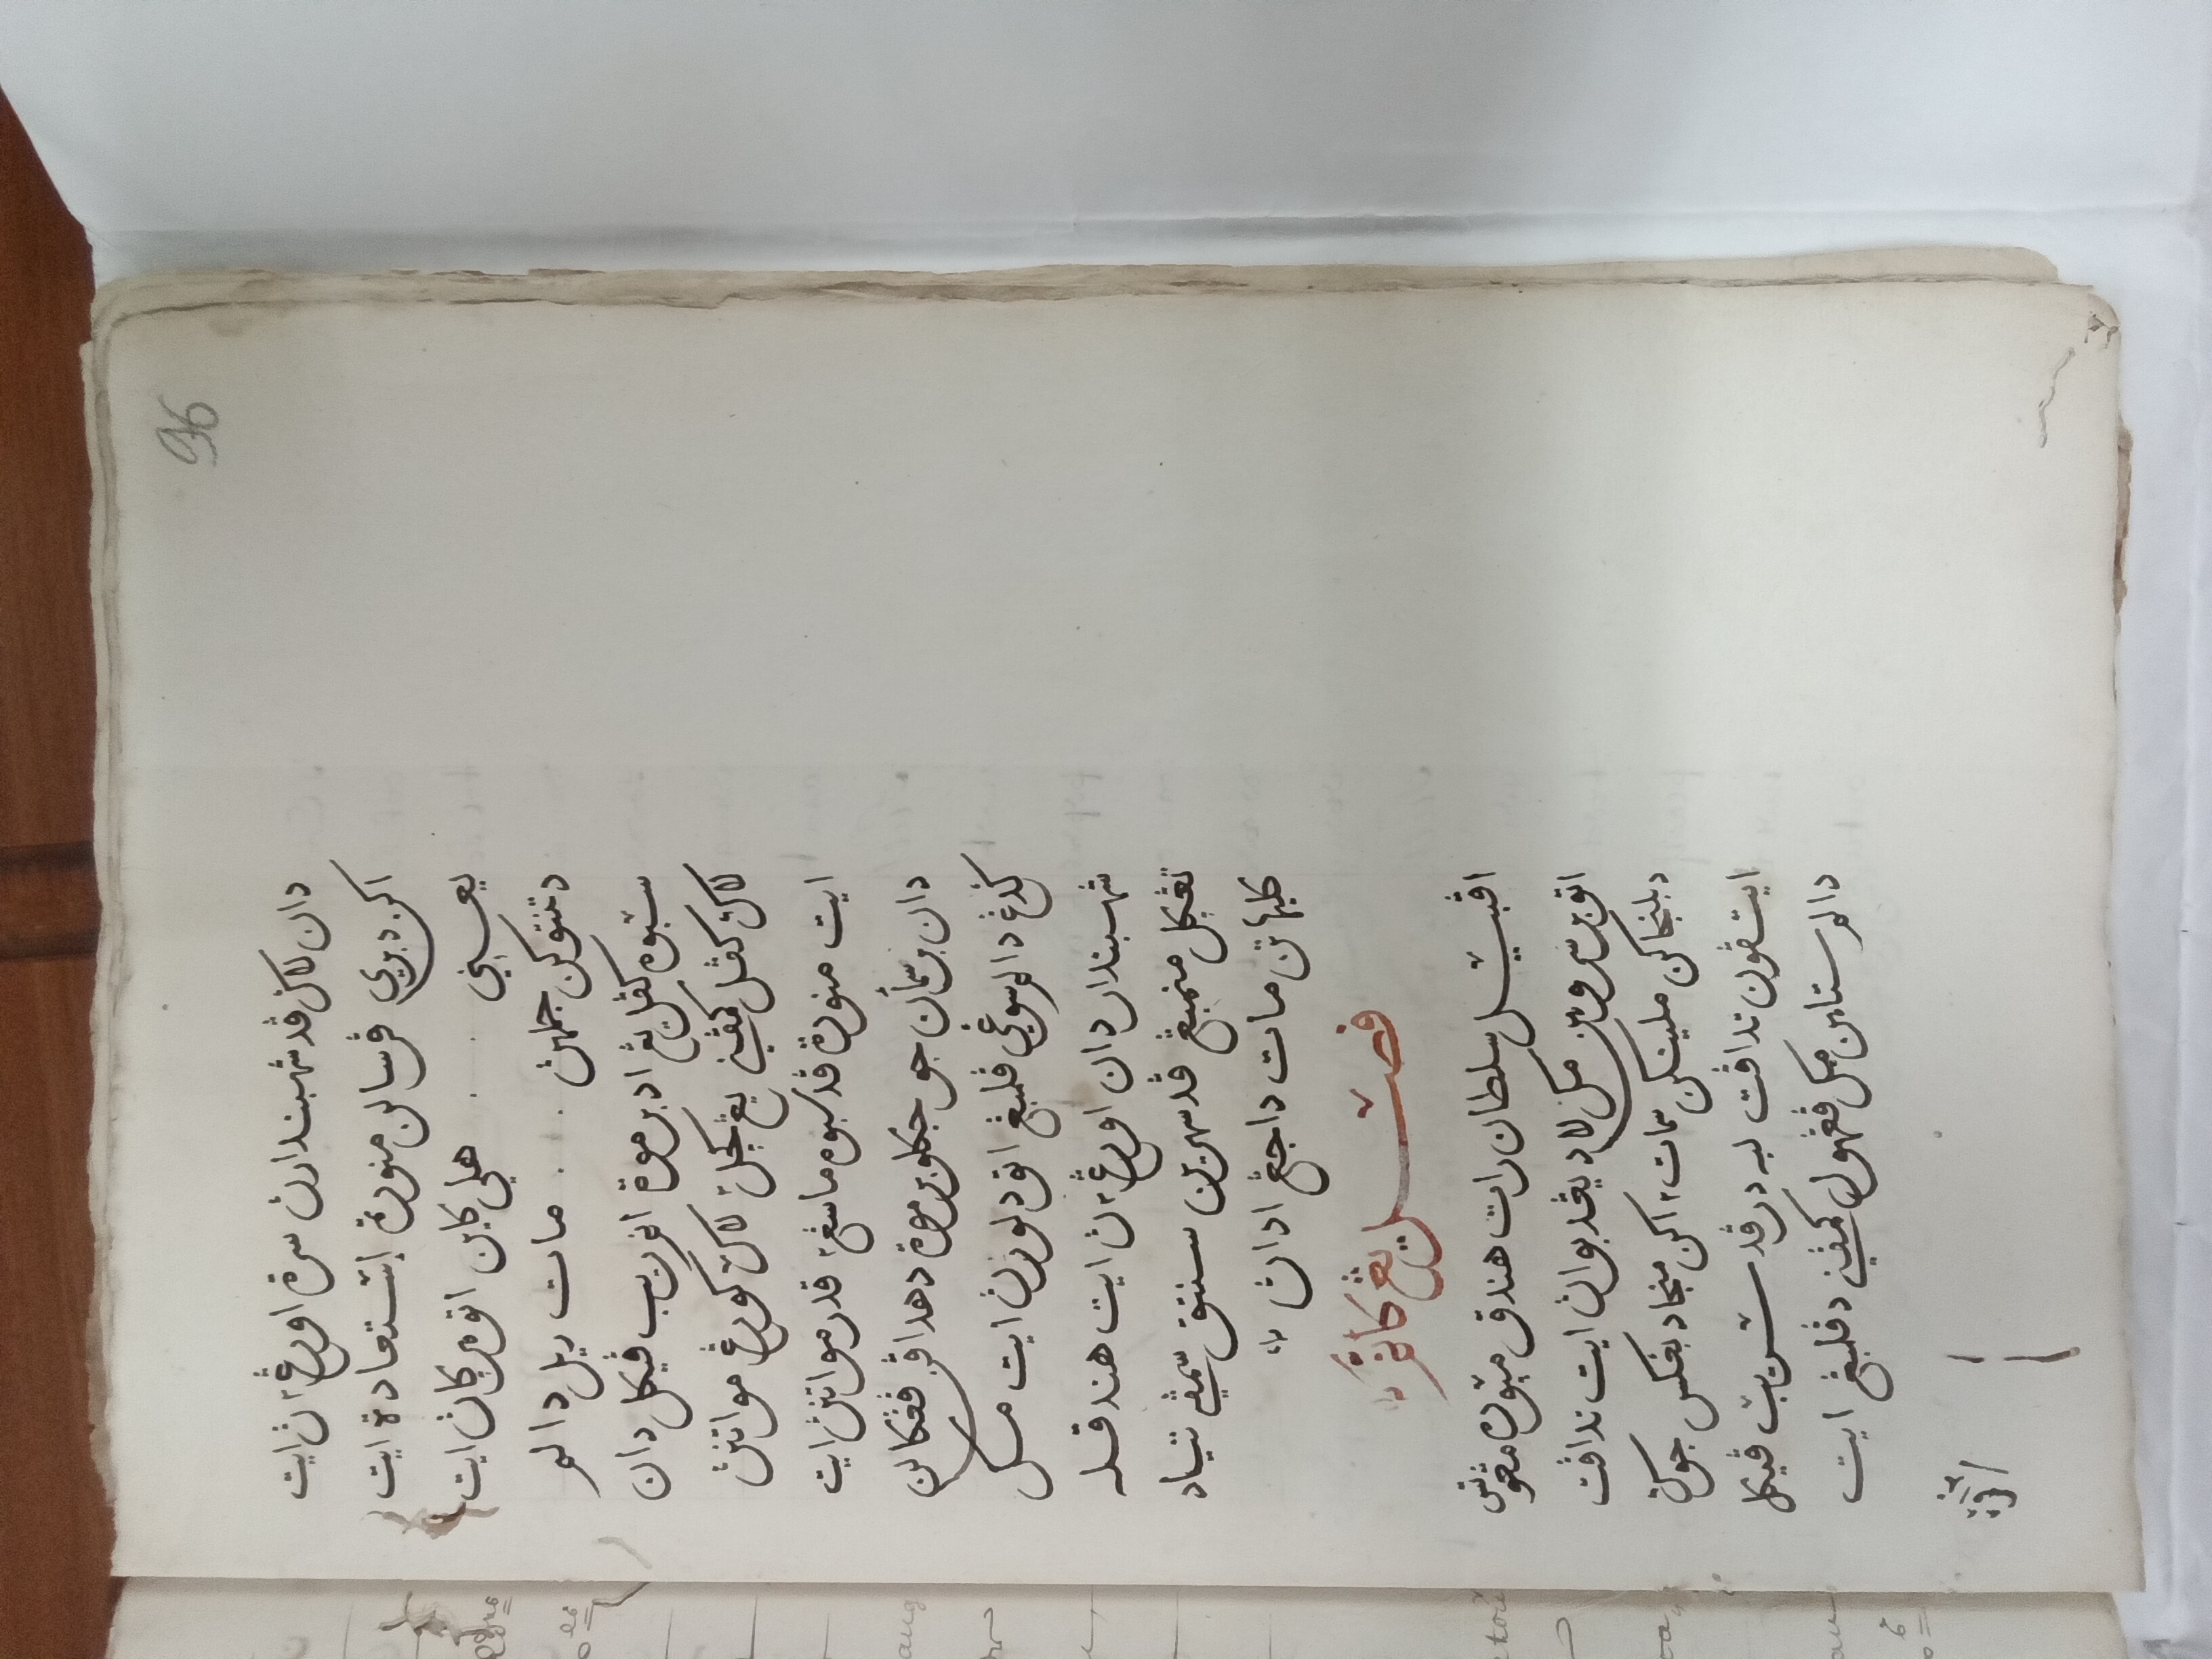 96
دان لاݢ ڤد شهبندارڽ سرة اورڠ٢ ڽ ايت
اكن دبري ڤرسالن منورة إستعادة ايت
يعني . . هلي كاين اتو هرݢاڽ ايت
دتنتوكن جملهڽ . . مات ريل دالم
سبوه كڤل يڠ اد برموة انم ريب ڤيكل دان
لاݢ كڤل كمڤني يڠ كچل٢ لاݢ كورڠ مواتنڽ
ايت منورة ڤد سبوه ماسڠ٢ قدر مواتنڽ ايت
دان برسمأن جو جكلو برموة دهداڤن ڤڠكالن
ݢدڠ دالم سوڠي ڤلمبڠ اتو دلورڽ ايت مك
شهبندار دان اورڠ٢ ڽ ايت هندقله
تڠݢل منمبڠ ڤد سهرين سنتق سمڤي تياد
كليهاتن مات داجڠ اداڽ
فصل يڠ كأنم
اڤبيل سلطان رات هندق مڽوره مڠوتس
اتو برسروين مك لاد يڠد بواڽ ايت تداڤت
دبلنجاكن ملينكن سمات٢ اكن منجاد بڠكس جوك
ايتڤون تداڤت لبه درڤد سريب ڤيكل
دالم ستاهن مك ڤڠهول كمڤني دڤلمبڠ ايت
تداڤت